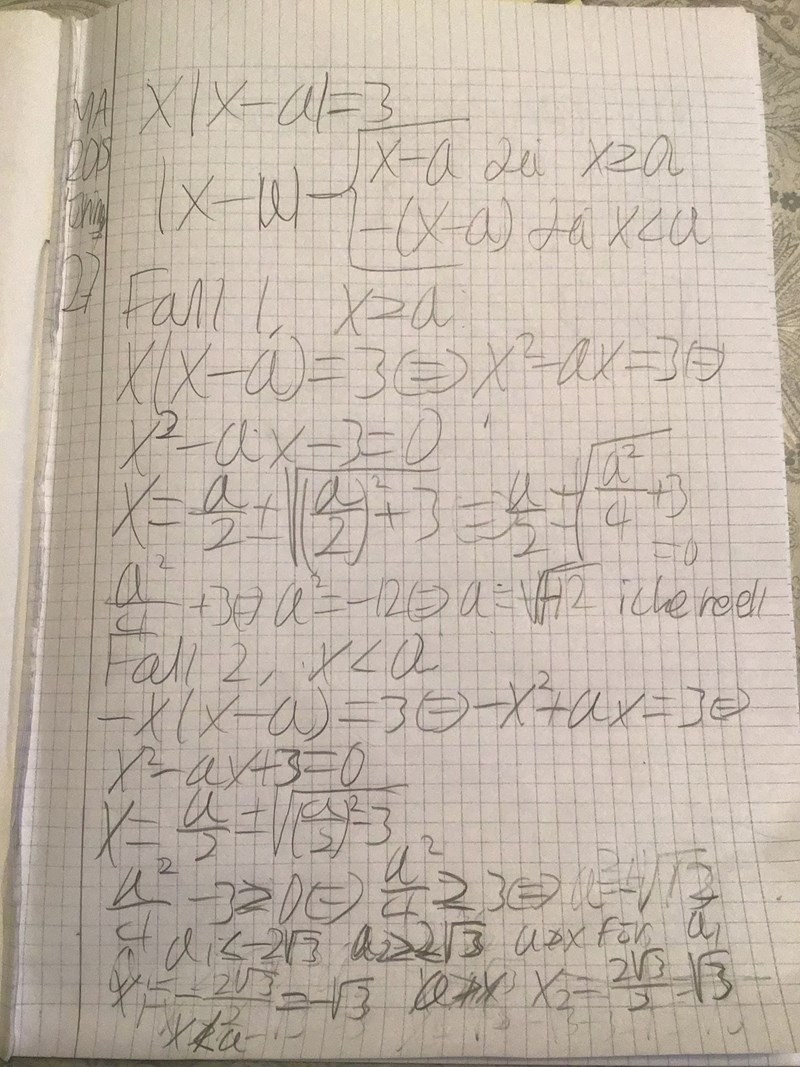 MA
x|x-a|=3
x-a då x≥a
-(x-a) då x<a
27
Fall 1, x≥a
x(x-a)=3⇔x²-ax=3⇔
x²-ax-3=0
x=a/2±√((a/2)²+3)=a/2±√(a²/4+3)
=0
a²/4+3⇔a²=-12⇔a=√-12 icke reell
Fall 2, x<a
-x(x-a)=3⇔-x²+ax=3⇔
x²-ax+3=0
x=a/2±√((a/2)²-3)
a²/4-3≥0⇔a²/4≥3⇔
a₁≤-2√3 a₂≥2√3 för a₁
=-√3 x₂=2√3/2=√3
x<a